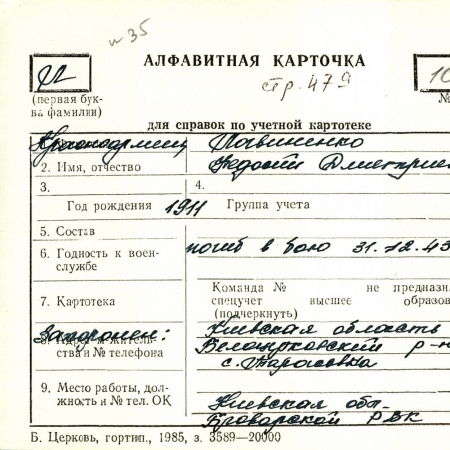 № 35
АЛФАВИТНАЯ КАРТОЧКА
стр. 479
(первая бук-
ва фамилии)
10
№
для справок по учетной картотеке
Красноармеец
2. Имя, отчество
3.
4.
Год рождения 1911 Группа учета
5. Состав
6. Годность к воен-
службе
погиб в бою 31.12.43
Команда № не предназн
спецучет высшее образов
(подчеркнуть)
7. Картотека
Захоронен:
Киевская область
8. Адрес и житель-
ства и № телефона
р-н
с. Тарасовка
9. Место работы, дол-
жность и № тел. ОК
Киевская обл.
Броварской РВК
Б. Церковь, гортип., 1985, з. 3589—20000